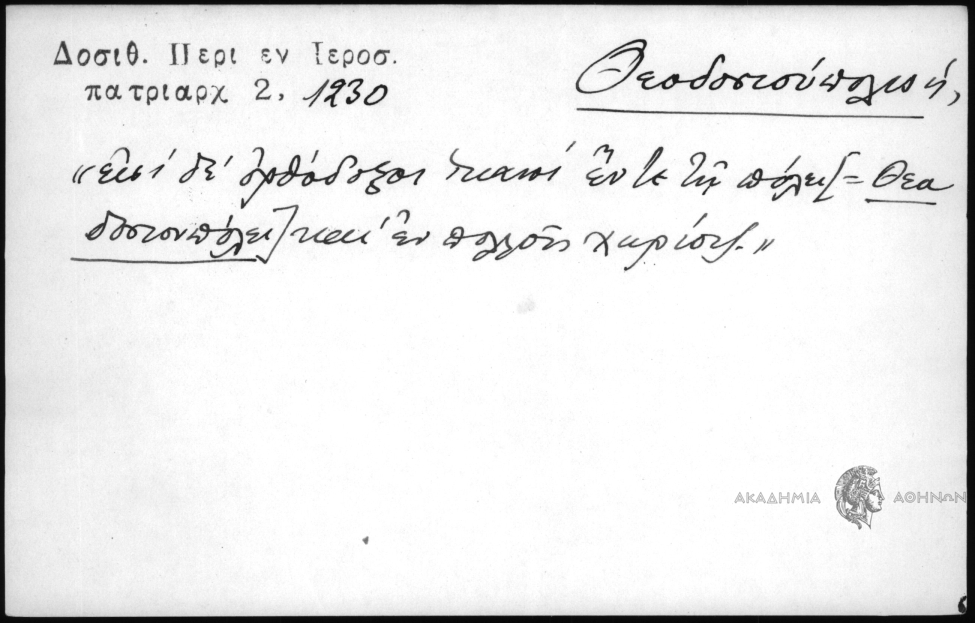 Δοσιθ. Περι εν Ιεροσ.
πατριαρχ 2, 1230
Θεοδοσιούπολις ἡ,
«εἰσὶ δὲ ὀρθόδοξοι ἱκανοὶ ἔν τε τῇ πόλει [= Θεο
δοσιουπόλει] καὶ ἐν πολλοῖς χωρίοις.»
ΑΚΑΔΗΜΙΑ ΑΘΗΝΩΝ